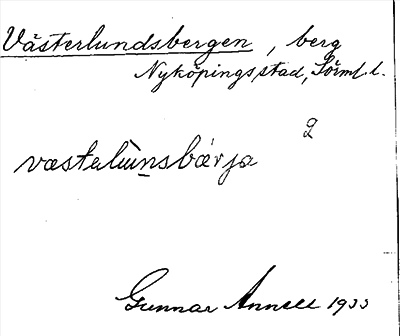 Västerlundsbergen, berg
Nyköpings stad, Sörml. l.
2
væstelùnsbærja
Gunnar Annell 1933